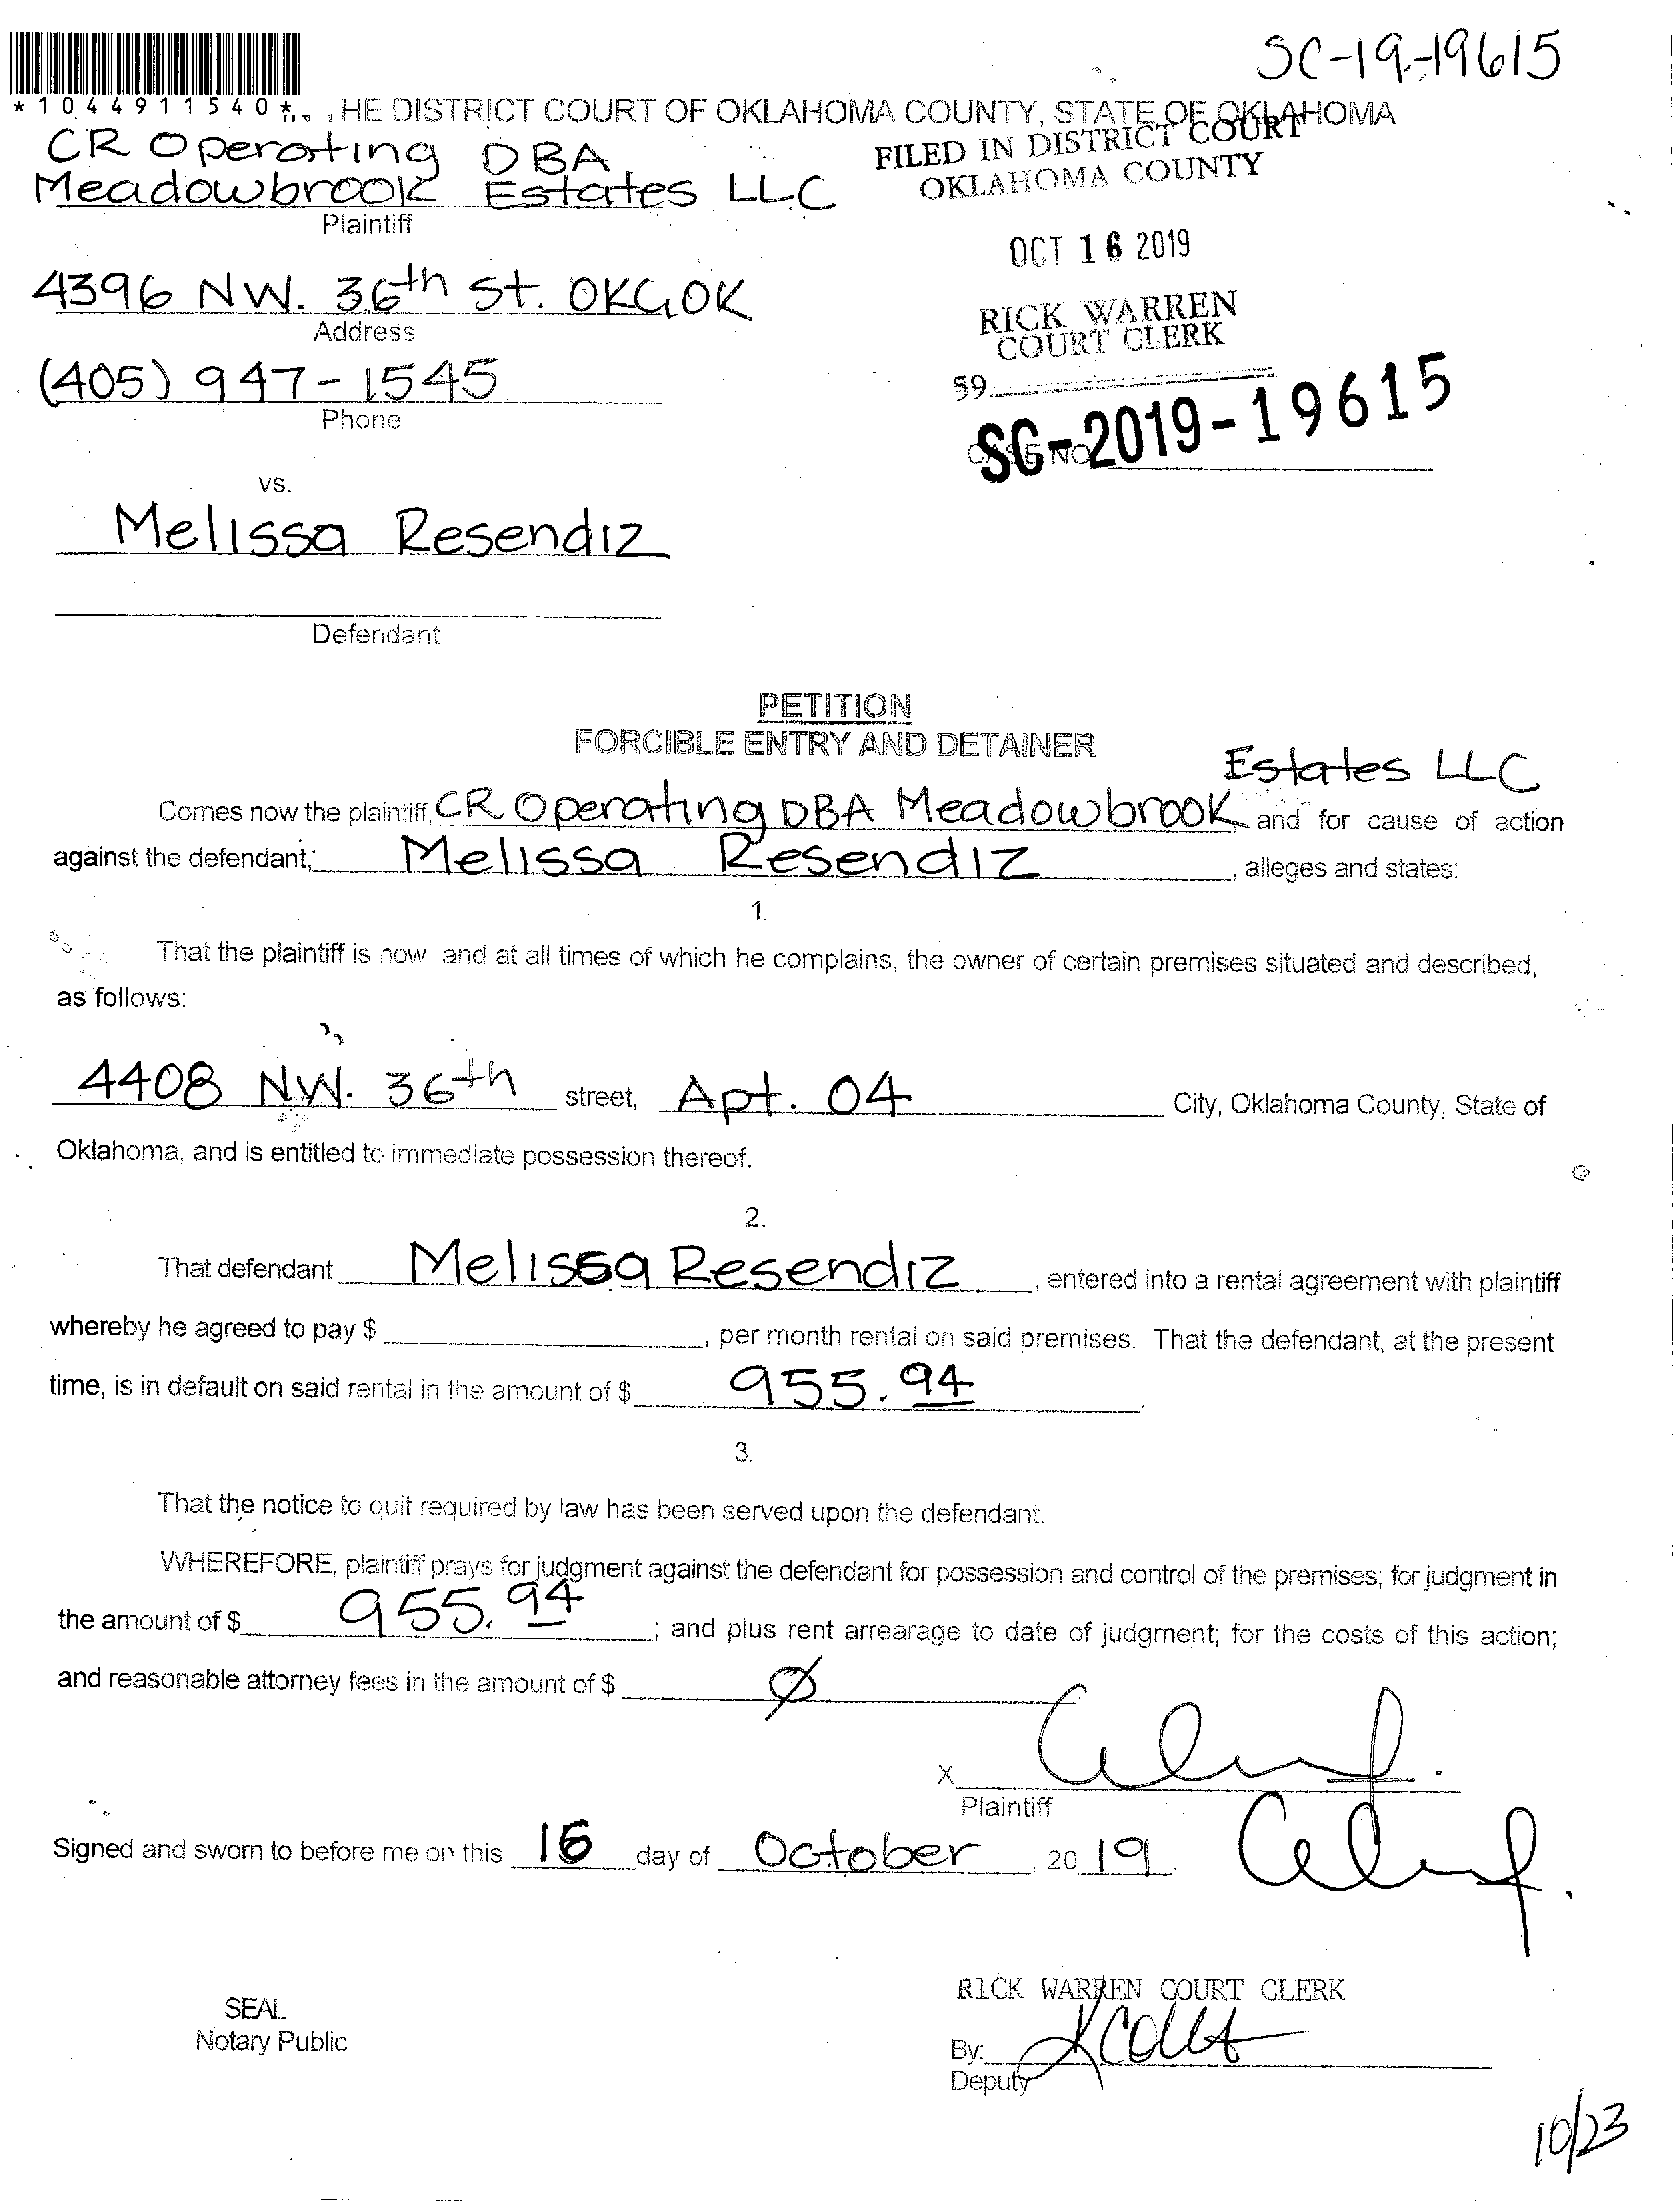 SC-19-19615
*1044911540*
HE DISTRICT COURT OF OKLAHOMA COUNTY, STATE OF OKLAHOMA
CR Operating DBA
Meadowbrook Estates LLC
Plaintiff
FILED IN DISTRICT COURT
OKLAHOMA COUNTY
OCT 16 2019
RICK WARREN
COURT CLERK
59
4396 NW. 36th St. OKC, OK
Address
(405) 947-1545
Phone
CASE NO.
SC-2019-19615
vs.
Melissa Resendiz
Defendant
PETITION
FORCIBLE ENTRY AND DETAINER
Estates LLC
Comes now the plaintiff, CR Operating DBA Meadowbrook and for cause of action
against the defendant, Melissa Resendiz, alleges and states:
1.
That the plaintiff is now and at all times of which he complains, the owner of certain premises situated and described,
as follows:
4408 NW. 36th street, Apt. 04 City, Oklahoma County, State of
Oklahoma, and is entitled to immediate possession thereof.
2.
That defendant Melissa Resendiz, entered into a rental agreement with plaintiff
whereby he agreed to pay $ , per month rental on said premises. That the defendant, at the present
time, is in default on said rental in the amount of $ 955.94.
3.
That the notice to quit required by law has been served upon the defendant.
WHEREFORE, plaintiff prays for judgment against the defendant for possession and control of the premises; for judgment in
the amount of $ 955.94; and plus rent arrearage to date of judgment; for the costs of this action;
and reasonable attorney fees in the amount of $ Ø
X
Plaintiff
Signed and sworn to before me on this 16 day of October 2019.
SEAL
Notary Public
RICK WARREN COURT CLERK
By:
Deputy
10/23